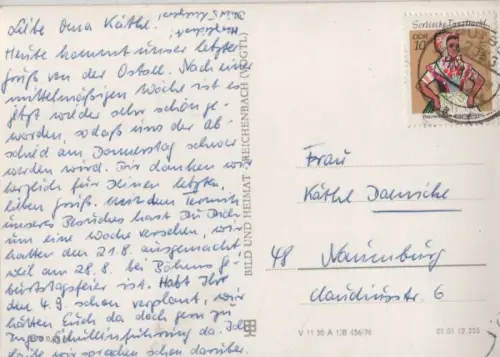 Liebe Oma Käthe!
Heute kommt unser letzter
Gruß von der Ostsee. Nach einer
mittelmäßigen Woche ist es
jetzt wieder sehr schön ge-
worden, sodaß uns der Ab-
schied am Donnerstag schwer
werden wird. Wir danken wir
herzlich für Deinen letzten
lieben Gruß. Mit dem Termin
unseres Besuches hast Du Dich
um eine Woche versehen, wir
hatten den 21.8. ausgemacht
weil am 28.8. bei Böhms Ge-
burtstagsfeier ist. Habt Ihr
den 4.9. schon verplant, wir
hätten Euch da doch gern zu
Ingos Schuleinführung da. Ich
daß wir sprechen schon darüber.
BILD UND HEIMAT REICHENBACH (VOGTL)
Sorbische Tanztracht
DDR 10
Frau
Käthe
48 Naumburg
Claudiusstr. 6
V 11 50 A 1/B 456/76
01 01 12 355